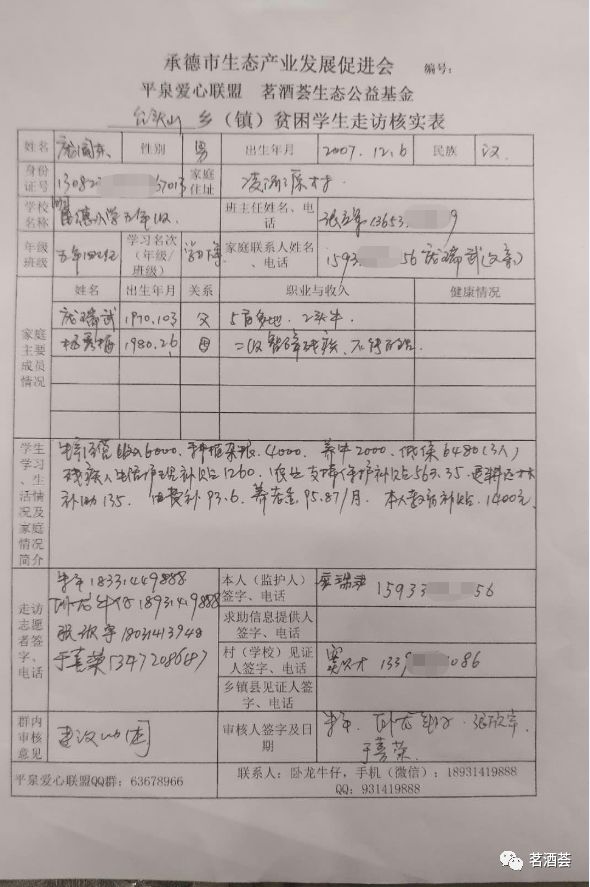 承德市生态产业发展促进会 编号：
平泉爱心联盟 茗酒荟生态公益基金
台头山 乡（镇）贫困学生走访核实表
姓名 性别 男 出生年月 2007.12.6 民族 汉
身份证号 家庭住址
学校名称 小学五年级 班主任姓名、电话
年级班级 学习名次（年级/班级） 家庭联系人姓名、电话 1593 56 瑞武(父亲)
家庭主要成员情况 姓名 出生年月 关系 职业与收入 健康情况
瑞武 1970.103 父 5亩多地. 2头牛.
杨秀梅 1980.26 母 二级智障残疾、
学生学习、生活情况及家庭情况简介
收入6000. 种植杂粮. 4000. 养牛2000. 低保6480(3人)
残疾人生活护理补贴1260. 农业支持保护补贴563.35.
补助135. 电费补93.6. 养老金95.87/月. 本人教育补贴. 1400元.
走访志愿者签字、电话
18331449888
卧龙牛仔18931419888
张欣宇18031413948
于喜荣13472086487
本人（监护人）签字、电话 15933 56
求助信息提供人签字、电话
村（学校）见证人签字、电话 1339 086
乡镇县见证人签字、电话
群内审核意见 建议 审核人签字及日期 卧龙牛仔. 张欣宇.
于喜荣.
平泉爱心联盟QQ群：63678966 联系人：卧龙牛仔，手机（微信）：18931419888
QQ：931419888
茗酒荟